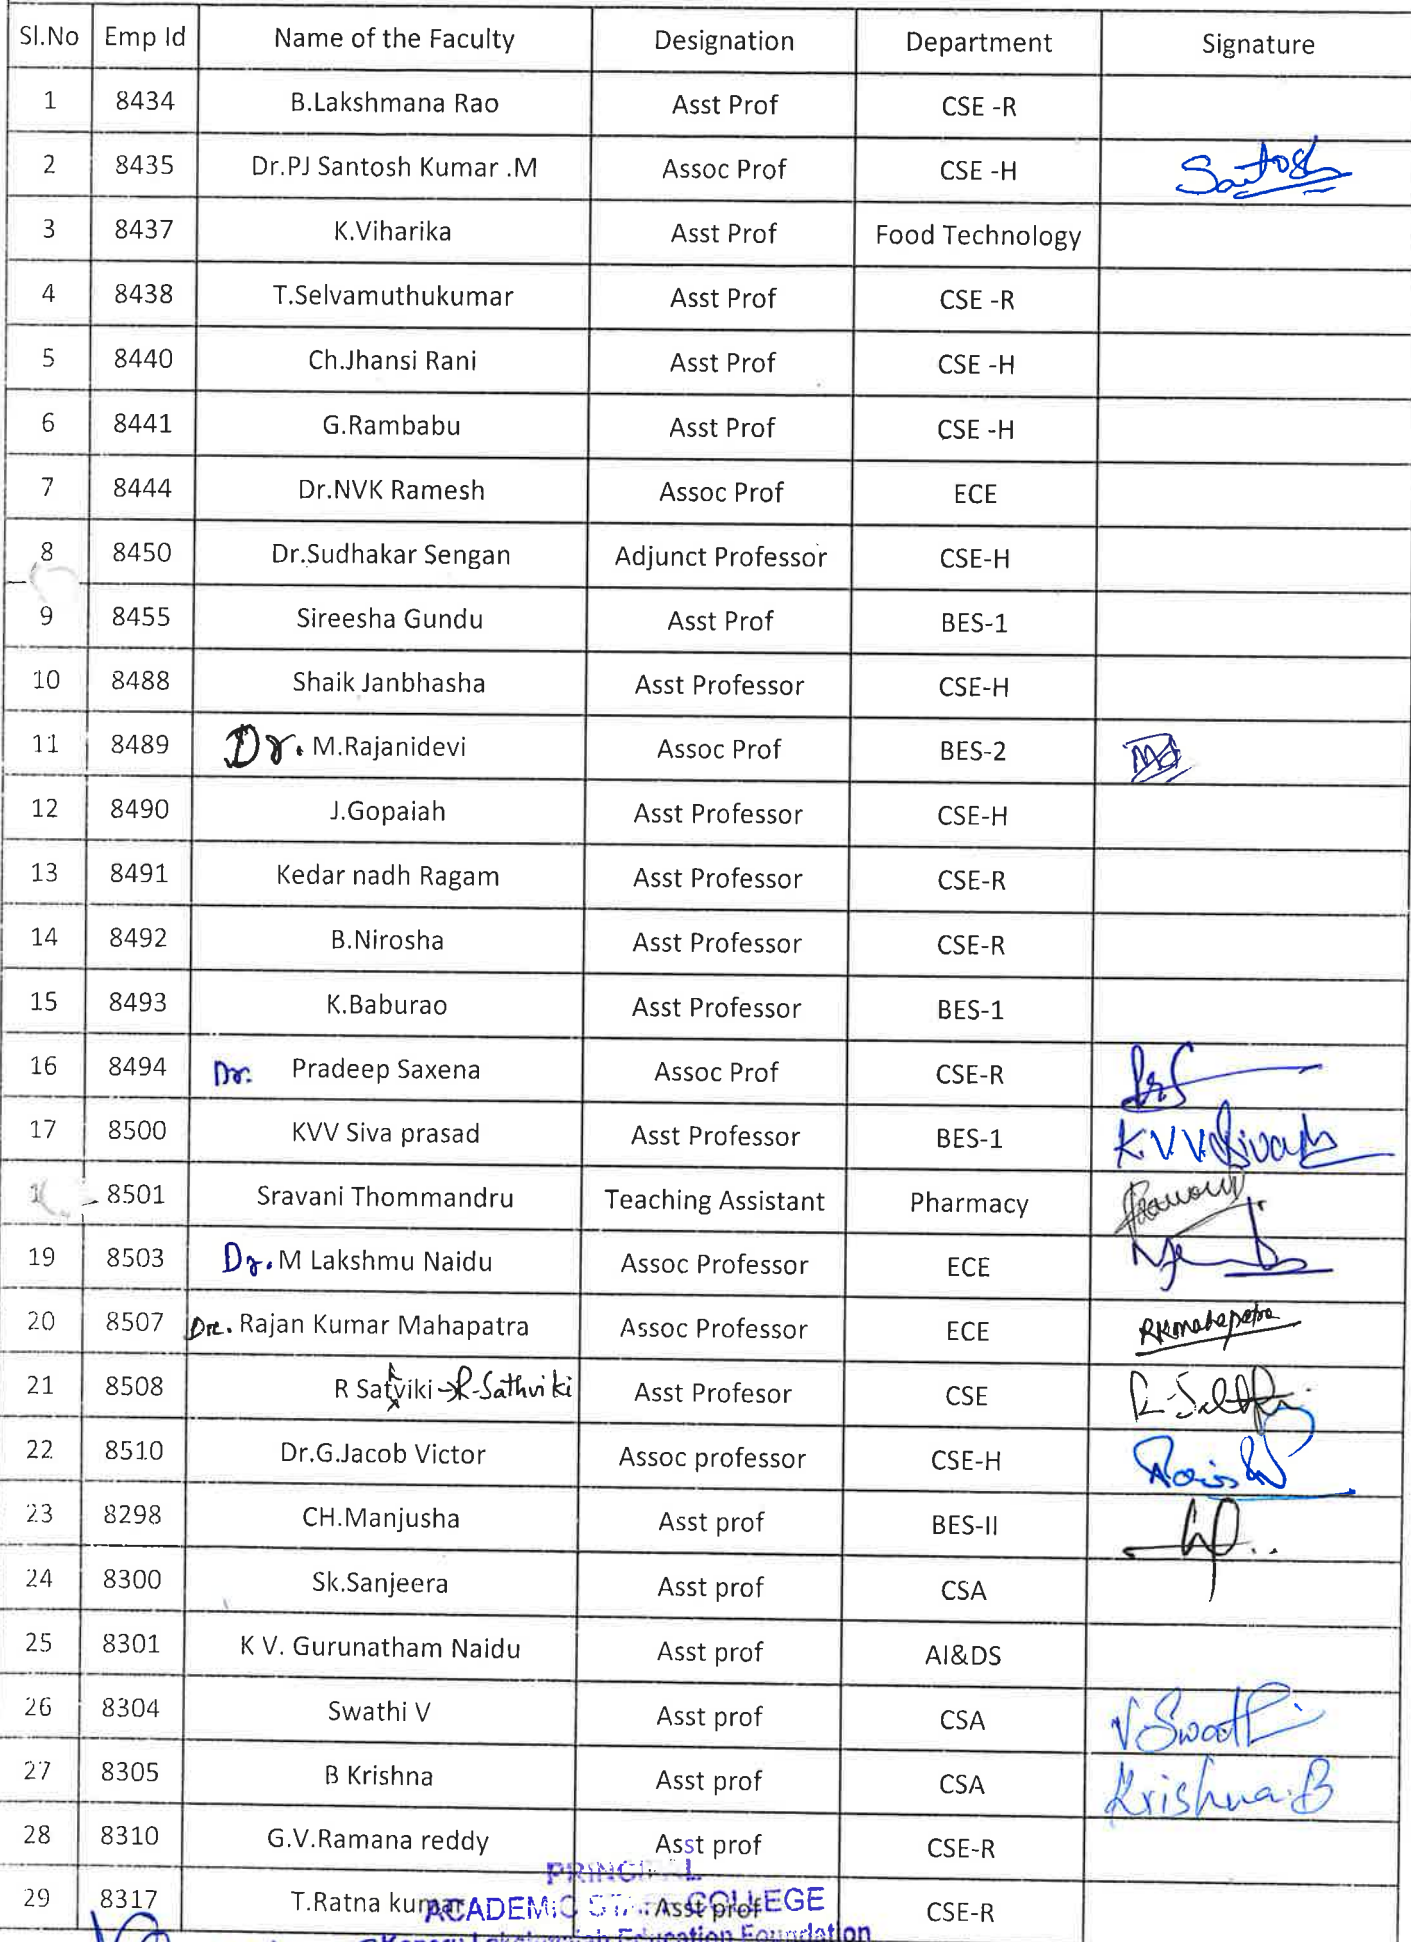 Sl.No Emp Id Name of the Faculty Designation Department Signature
1 8434 B.Lakshmana Rao Asst Prof CSE -R
2 8435 Dr.PJ Santosh Kumar .M Assoc Prof CSE -H Santosh
3 8437 K.Viharika Asst Prof Food Technology
4 8438 T.Selvamuthukumar Asst Prof CSE -R
5 8440 Ch.Jhansi Rani Asst Prof CSE -H
6 8441 G.Rambabu Asst Prof CSE -H
7 8444 Dr.NVK Ramesh Assoc Prof ECE
8 8450 Dr.Sudhakar Sengan Adjunct Professor CSE-H
9 8455 Sireesha Gundu Asst Prof BES-1
10 8488 Shaik Janbhasha Asst Professor CSE-H
11 8489 Dr. M.Rajanidevi Assoc Prof BES-2
12 8490 J.Gopaiah Asst Professor CSE-H
13 8491 Kedar nadh Ragam Asst Professor CSE-R
14 8492 B.Nirosha Asst Professor CSE-R
15 8493 K.Baburao Asst Professor BES-1
16 8494 Dr. Pradeep Saxena Assoc Prof CSE-R
17 8500 KVV Siva prasad Asst Professor BES-1
8501 Sravani Thommandru Teaching Assistant Pharmacy
19 8503 Dr. M Lakshmu Naidu Assoc Professor ECE
20 8507 Dr. Rajan Kumar Mahapatra Assoc Professor ECE RKMahapatra
21 8508 R Satviki → R-Sathviki Asst Prefesor CSE
22 8510 Dr.G.Jacob Victor Assoc professor CSE-H
23 8298 CH.Manjusha Asst prof BES-II
24 8300 Sk.Sanjeera Asst prof CSA
25 8301 K V. Gurunatham Naidu Asst prof AI&DS
26 8304 Swathi V Asst prof CSA V Swathi
27 8305 B Krishna Asst prof CSA Krishna.B
28 8310 G.V.Ramana reddy Asst prof CSE-R
PRINCIPAL
29 8317 T.Ratna kumar Asst prof CSE-R
ACADEMIC STAFF COLLEGE
Education Foundation